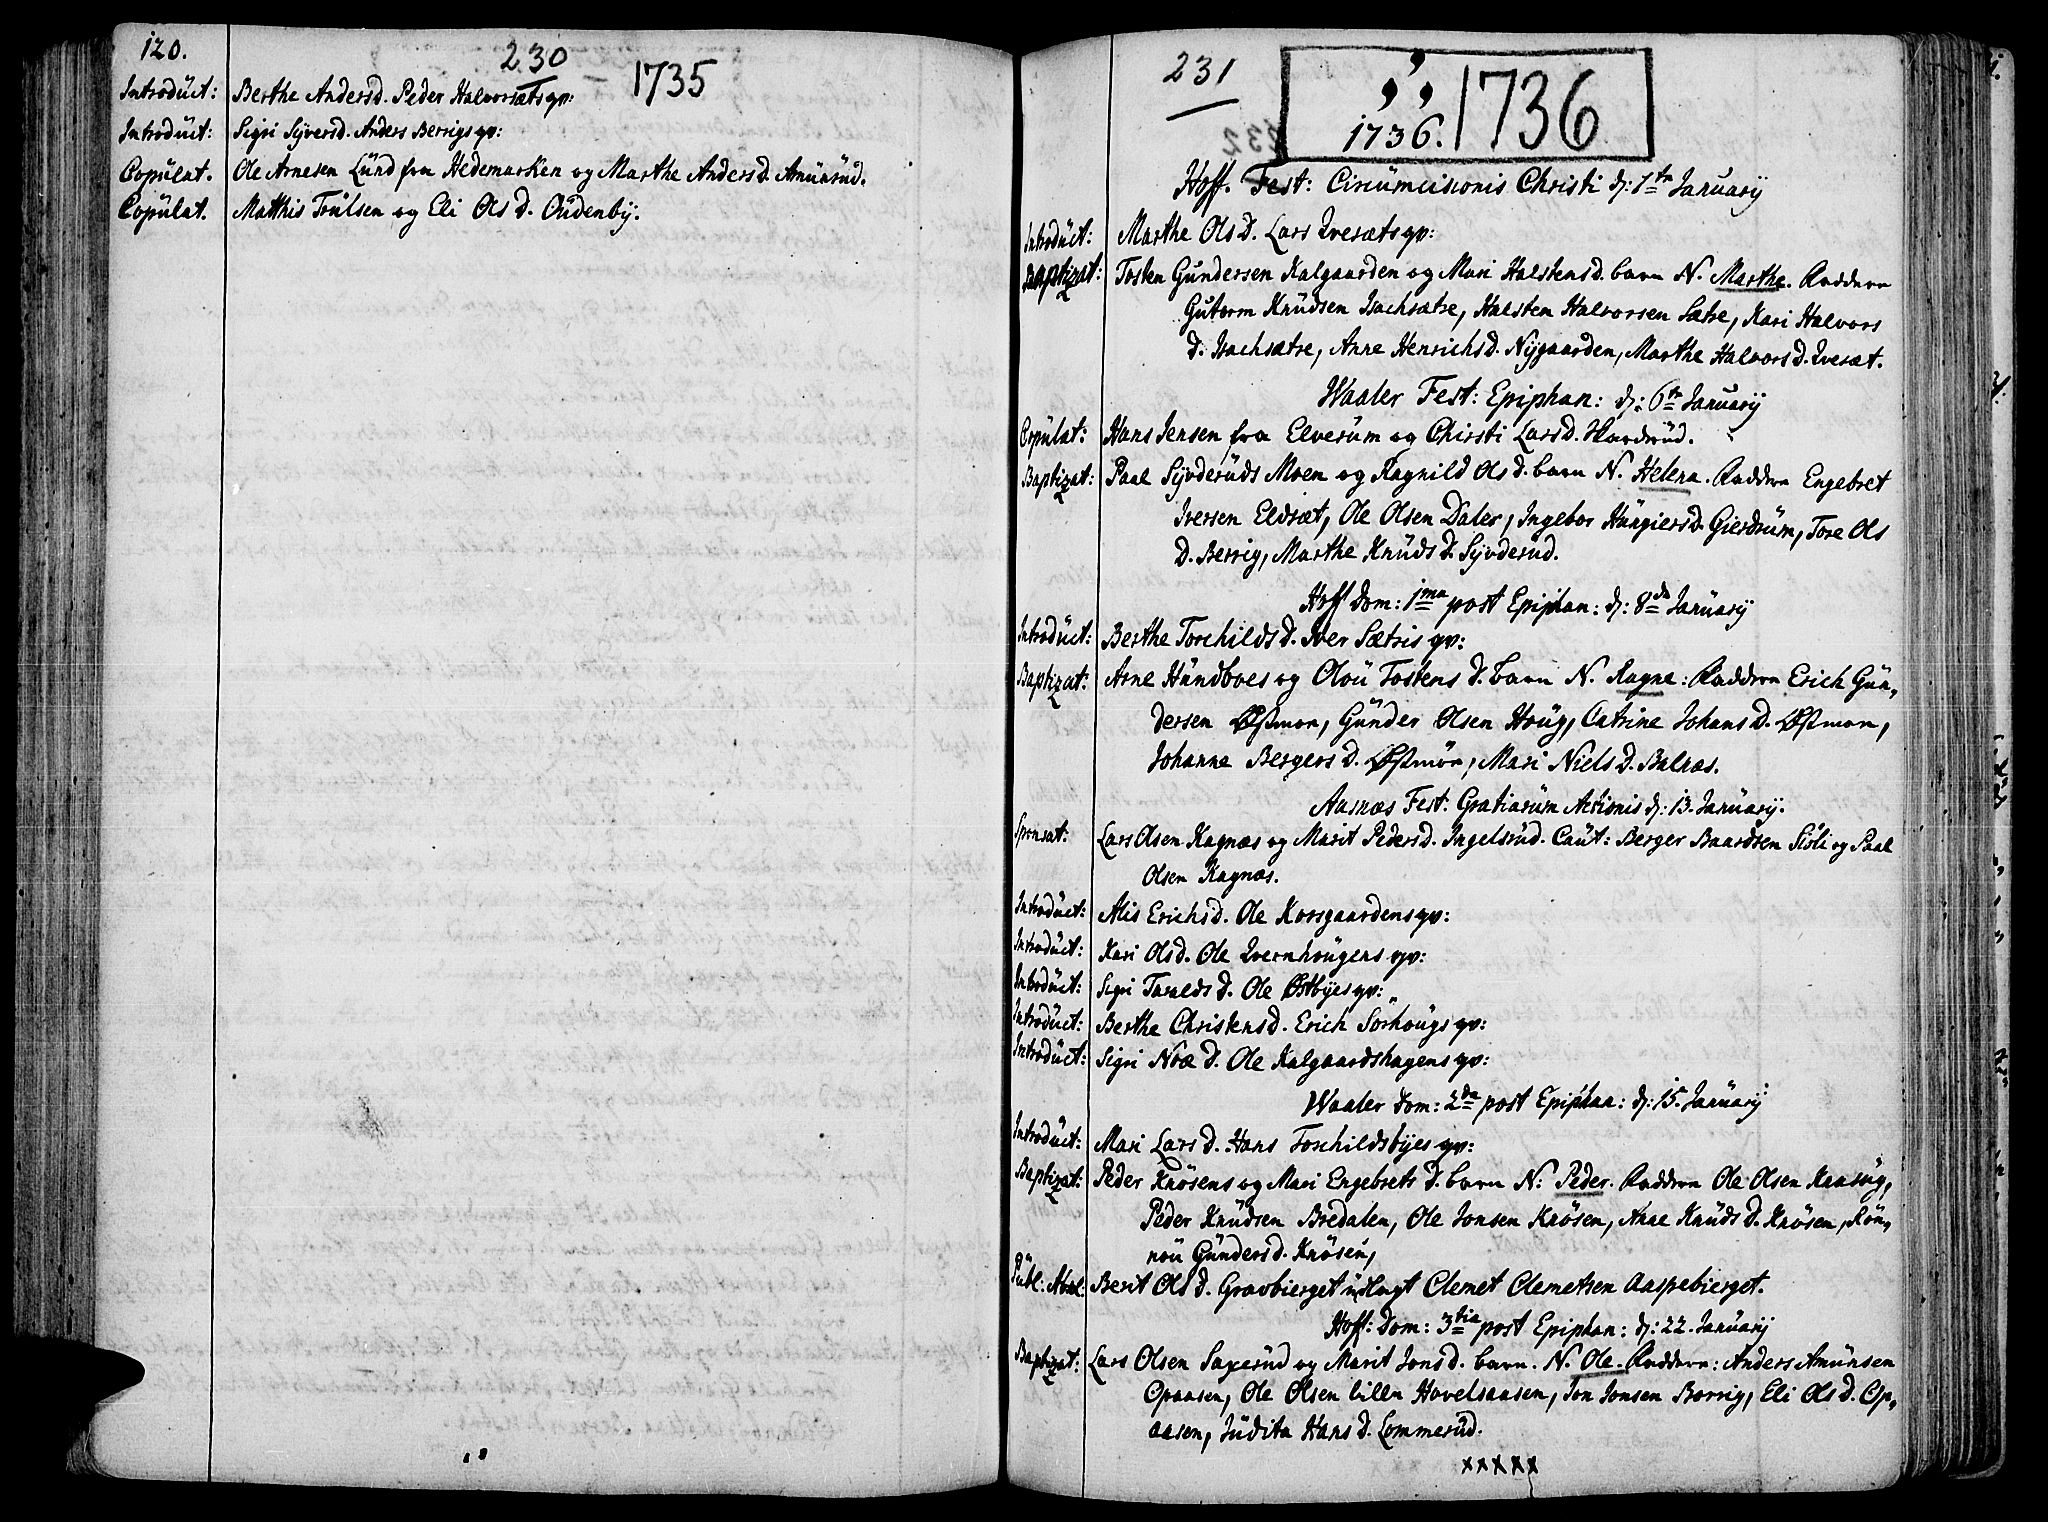 120.
230
1735
Introduct: Berthe Andersd. Peder Halvorsætsqv:
Introduct: Sigri Syversd. Anders Berrigsqv:
Copulat. Ole Arnesen Lund fra Hedemarken og Marthe Anders D. Amunrud.
Copulat. Matthis Trulsen og Eli Ols D. Oudenby.
231
1736. 1736
Hoff. Fest: Circumcisionis Christi d: 1te January
Introduct: Marthe Ols D. Lars Iversætsqv:
Baptizat: Tosten Gundersen Kalgaarden og Mari Halstensd. barn N. Marthe. Faddere
Gutorm Knudsen Isachsætre, Halsten Halvorsen Sætre, Kari Halvors
D. Isachsætre, Anne Henrichsd. Nygaarden, Marthe Halvors D. Iversæt.
Waaler Fest: Epiphan: d: 6te January
Copulat: Hans Jensen fra Elverum og Chirsti Larsd.
Baptizat: Paal Syvderuds Moen og Ragnild Ols D. barn N. Helena. Faddere Engebret
Iversen Eldsæt, Ole Olsen Daler, Ingebor Hungiersd. Gierdrum, Tore Ols
D. Berrig, Marthe Knuds D. Syvderud.
Hoff Dom: 1ma post Epiphan: d: 8de January
Introduct: Berthe Torchilds D. Iver Sætris qv:
Baptizat: Arne Hundboes og Olou Tostens D. barn N. Ragne: Faddere Erich Gun,
dersen Østmoe, Gunder Olsen Houg, Catrine Johans D. Østmoe,
Johanne Bergers D. Østmoe, Mari Niels D. Balnæs.
Aasnæs Fest: Gratiarum Actionis d: 13. January.
Sponsat: Lars Olsen Kagnæs og Marit Pedersd. Ingelsrud. Caut: Berger Baardsen Sisli og Paal
Olsen Kagnæs.
Introduct: Alis Erichsd. Ole Korsgaardensqv:
Introduct: Kari Olsd. Ole Qvernhougens qv:
Introduct: Sigri Taralds D. Ole Østbyesqv:
Introduct: Berthe Christensd. Erich Sorhougs qv:
Introduct: Sigri Noæ D. Ole Kalgaardshagensqv:
Waaler Dom: 2da post Epiphan: d: 15. January
Introduct: Mari Lars D. Hans Torchildsbyes qv:
Baptizat: Peder Knosens og Mari Engebrets D. barn N: Peder. Faddere Ole Olsen
Peder Knudsen Bredalen, Ole Jonsen Knosen, Anne Knuds D. Knosen, Røn,
nou Gundersd. Knosen,
Publ: Absol: Berit Ols D. Gravbierget udlagt Clemet Clemetsen Aaspebierget.
Hoff: Dom: 3tia post Epiphan: d: 22. January
Baptizat: Lars Olsen Saxerud og Marit Jonsd. barn. N. Ole. Faddere: Anders Amunsen
Opaasen, Ole Olsen lille Hovelsaasen, Jon Jonsen Borrig, Eli Ols D. Op,
aasen, Judita Hans D. Lommerud.
xxxxx